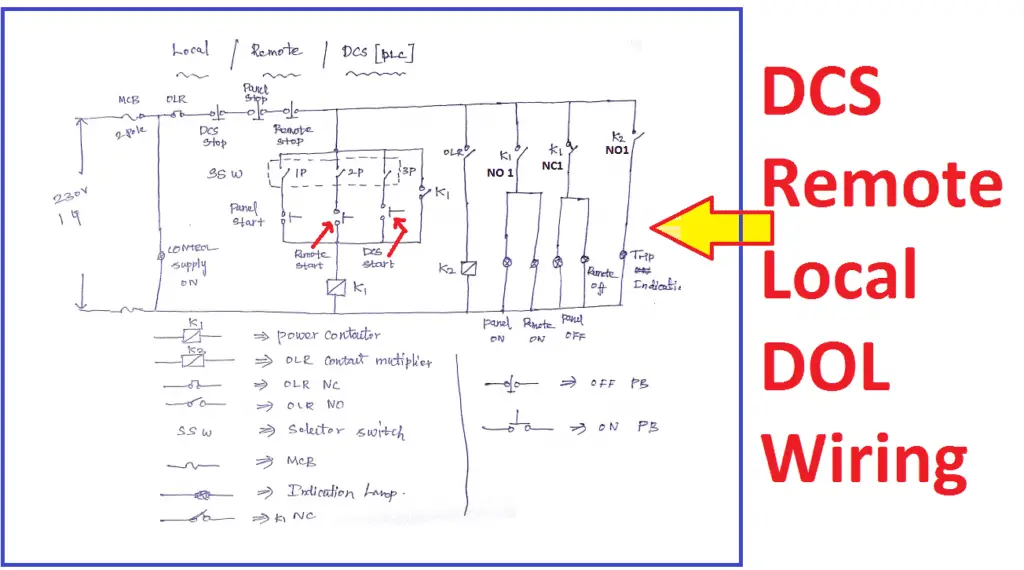 Local / Remote / DCS [PLC]
MCB
2-Pole
OLR
DCS
Stop
Panel
Stop
Remote
Stop
230V
1φ
CONTROL
supply
ON
SSW
1P
2P
3P
K1
Panel
Start
Remote
Start
DCS
Start
K1
OLR
K2
K1
NO 1
K1
NC1
K2
NO1
Panel
ON
Remote
ON
Panel
OFF
Remote
off
Trip
Indicati.
K1 ⇒ power contactor
K2 ⇒ OLR contact mutiplier
⇒ OLR NC
⇒ OLR NO
SSW ⇒ Selector switch
⇒ MCB
⇒ Indication Lamp.
⇒ K1 NC
⇒ OFF PB
⇒ ON PB
DCS
Remote
Local
DOL
Wiring